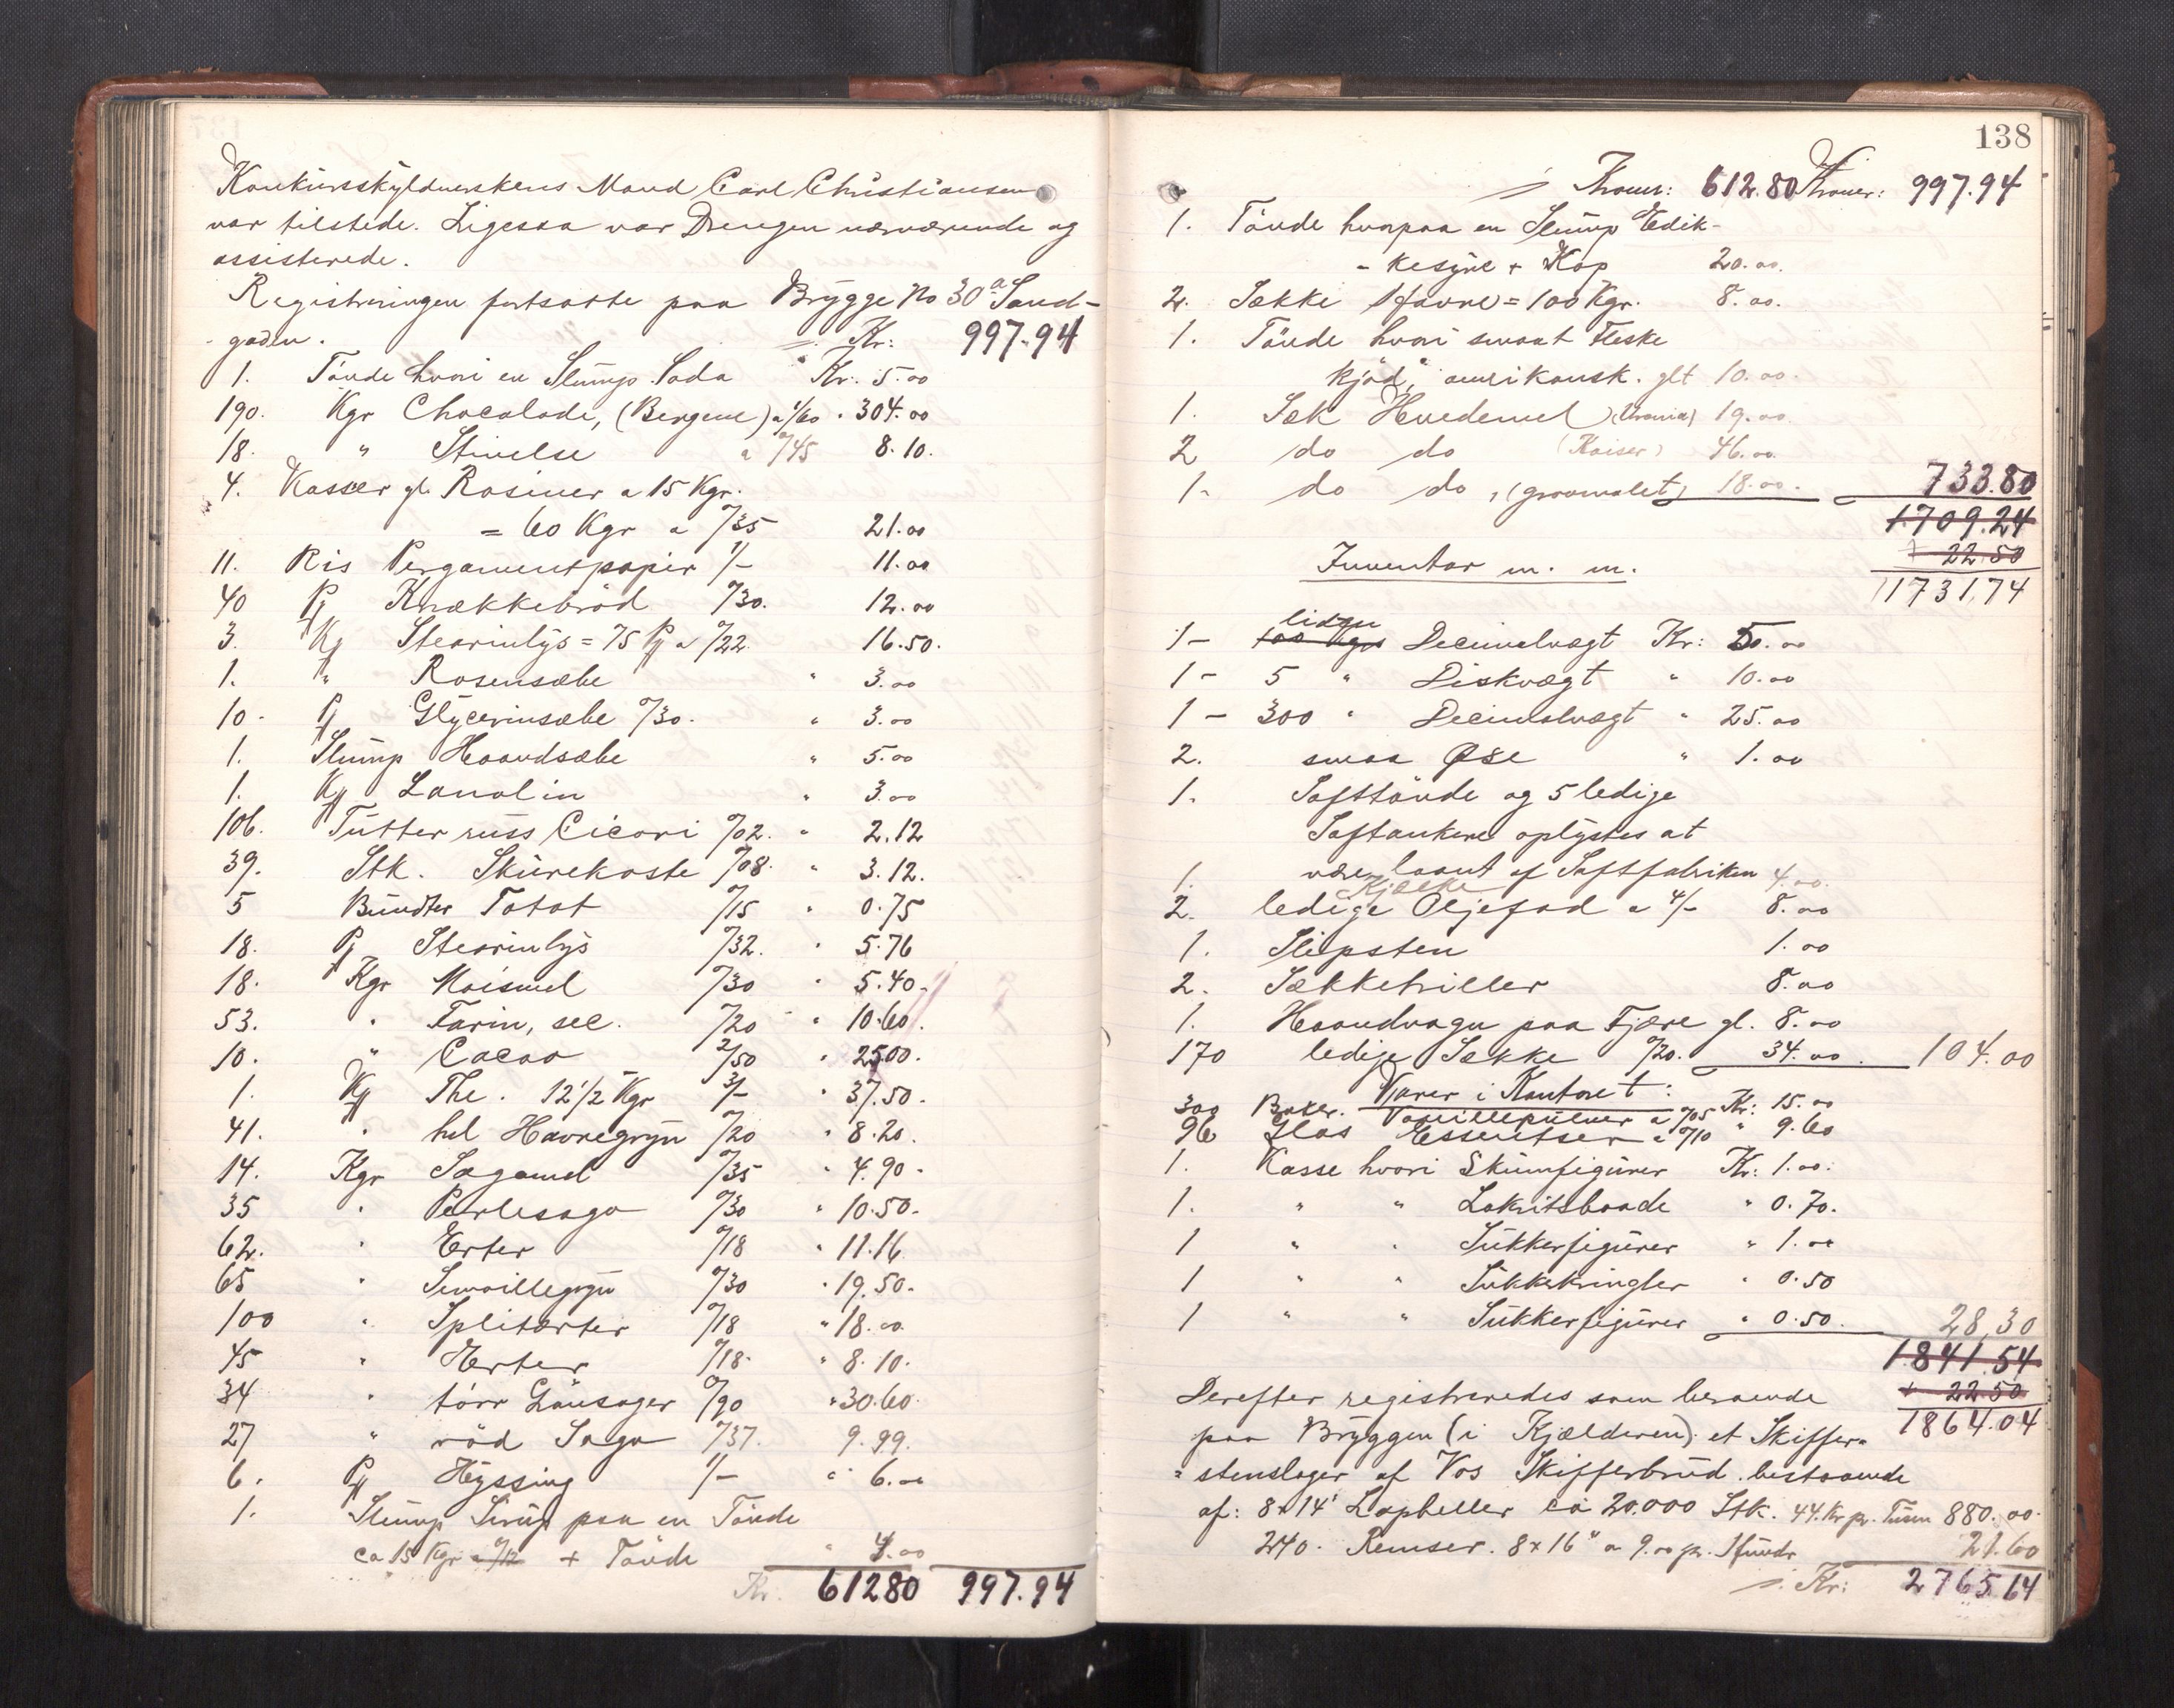 Konkursskyldnerskens Mand Carl Christiansen
var tilstede. Ligesaa var Drengen nærværende og
assisterede.
Registreringen fortsatte paa Brygge No 30a Sand-
- gaden. Kr: 997.94
1. Tønde hvori en Slump Soda Kr. 5.00
190. Kgr Chocolade, (Bergene) a 1/60 " 304.00
18. " Stivelse a 0/45 8.10.
4. Kasser gl. Rosiner a 15 Kgr.
= 60 Kgr a 0/35 21.00
11. Ris Pergamentpapir 1/- 11.00
40 Pk Knækkebrød 0/30. 12.00
3. Ks Stearinlys = 75 Pk a 0/22 16.50.
1. " Rosensæbe " 3.00
10. Pk Glycerinsæbe 0/30. " 3.00
1. Slump Haandsæbe " 5.00
1. Ks Lanolin " 3.00
106. Tutter russ Cicori 0/02. " 2.12
39. Stk. Skurekoste 0/08. " 3.12.
5 Bundter Totot 0/15 " 0.75
18. Pk Stearinlys 0/32. " 5.76
18. Kgr Maismel 0/30 " 5.40.
53. " Farin, sec. 0/20 " 10.60.
10. " Cacao 2/50 " 25.00.
1. Ks The. 12 1/2 Kgr 3/- " 37.50.
41. " hel Havregryn 0/20 " 8.20.
14. Kgr Sagomel 0/35 " 4.90.
35 " Perlesago 0/30 " 10.50.
62. " Erter 0/18 " 11.16
65 " Semoillegryn 0/30 " 19.50.
100 " Splitærter 0/18 " 18.00.
45 " Herter 0/18. " 8.10.
34 " tørr Gansager 0/90 " 30.60
27 " rød Sago 0/37. 9.99.
6. Pk Hyssing 1/- " 6.00
1. Slump Sirup paa en Tønde
ca 15 Kgr a 0/12 + Tønde " 4.00
Kr. 612.80 997.94
138
Kroner: 612.80 Kroner: 997.94
1. Tønde hvorpaa en Slump Edik-
- kesyre + Kop 20.00.
2. Sække Havre = 100 Kgr. 8.00.
1. Tønde hvori smaat Fleske
kjød, amerikansk. glt 10.00.
1. Sæk Hvedemel (Urania) 19.00
2 do do (Kaiser) 46.00
1. do do, (groomalet) 18.00. 733.80
1709.24
+ 22.50
Inventar m. m. 1731.74
liden
1 - 100 Kgrs Decimalvægt Kr: 5.00
1 - 5 " Diskvægt " 10.00
1 - 300 " Decimalvægt " 25.00
2. smaa Øse " 1.00
1. Safttønde og 5 ledige
Saftankere oplystes at
være laant af Saftfabriken
1. Kjælke 4.00.
2. ledige Oljefad a 4/- 8.00
1. Slipsten 1.00
2. Sækketriller 8.00
1. Haandvogn paa Fjære gl. 8.00
170 ledige Sække 0/20. 34.00. 104.00
Varer i Kontoret:
300 Breve. Vanillepulver a 0/05 Kr: 15.00
96 Glas Essentser a 0/10 " 9.60
1. Kasse hvori Skumfigurer Kr: 1.00.
1. " " Lakritsbaade " 0.70.
1 " " Sukkerfigurer " 1.00
1 " " Sukkerkringler " 0.50
1 " " Sukkerfigurer " 0.50. 28,30
1841.54
+ 22.50
1864.04
Derefter registreredes som beroende
paa Bryggen (i Kjælderen) et Skiffer-
- stenslager af Vos Skifferbrud bestaaende
af: 8x14" Lapheller ca 20.000 Stk. 44. Kr pr. Tusen 880.00.
240. Remser. 8x16" a 9.00 pr. Hundr 21.60
Kr: 2765.64